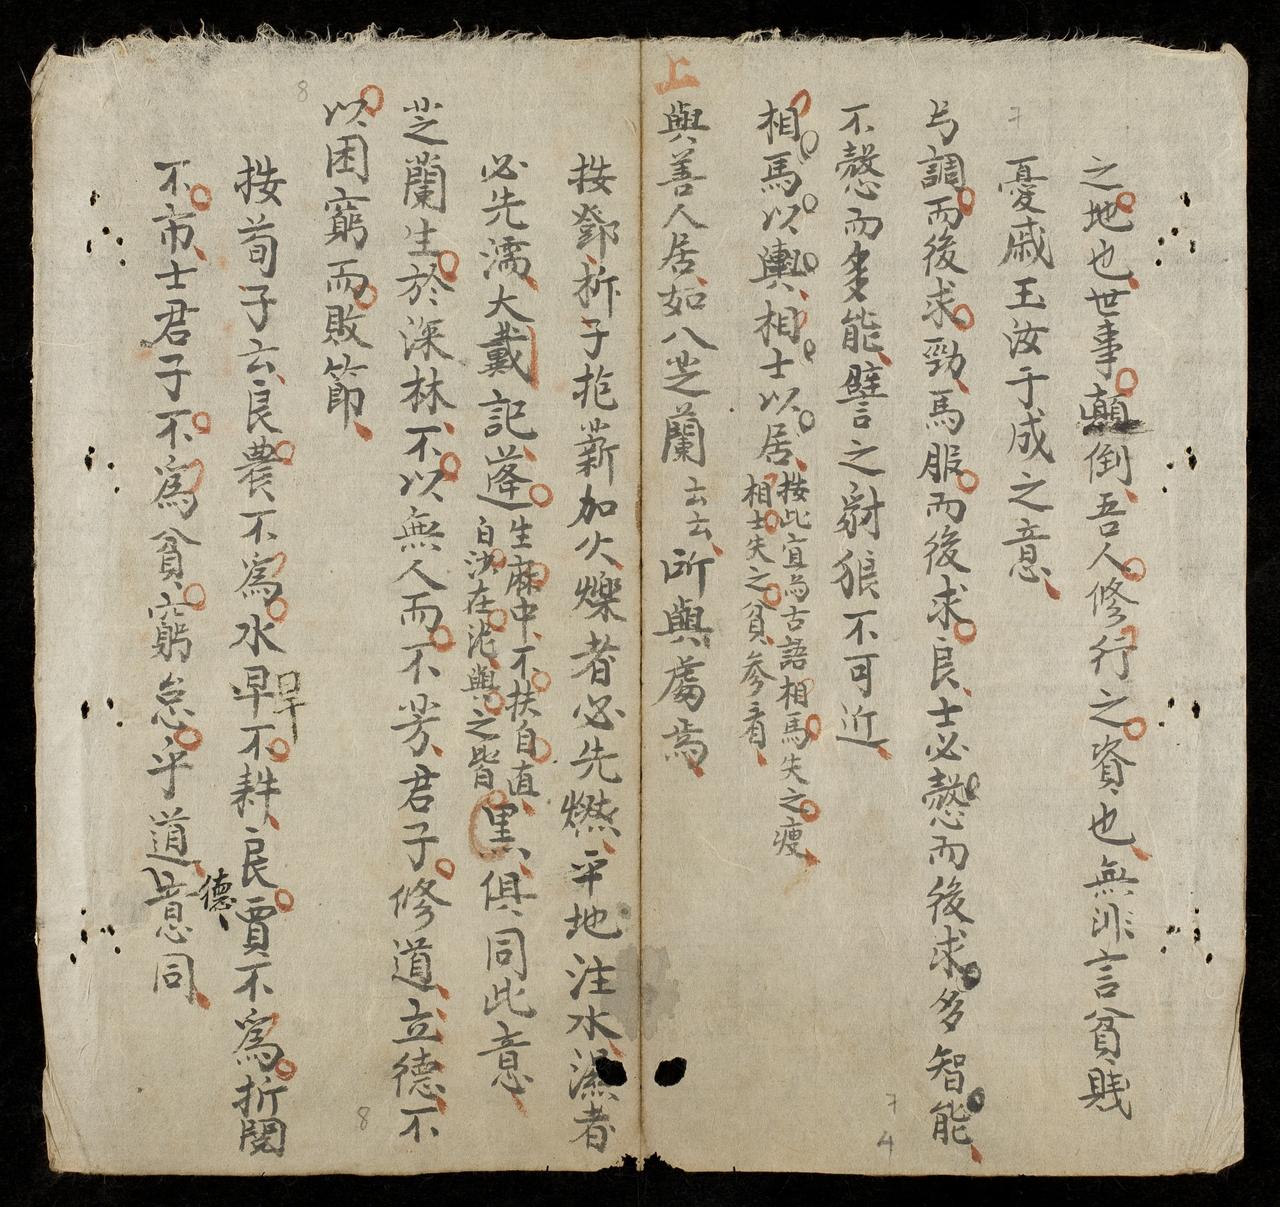 之地也世事顛倒吾人修行之資也無非言貧賎
憂戚玉汝于成之意
弓調而後求勁馬服而後求良士必愨而後求多智能
不愨而多能譬之豺狼不可近
相馬以輿相士以居
按此宜為古語相馬失之瘦
相士失之貧参看
上
與善人居如入芝蘭云云所與處焉
按鄧析子抱薪加火爍者必先燃平地注水濕者
必先濡大戴記蓬
生麻中不扶自直
白沙在泥與之皆
黒俱同此意
芝蘭生於深林不以無人而不芳君子修道立德不
以困窮而敗節
按荀子云良農不為水旱不耕良賈不為折閱
旱
不市士君子不為貧窮怠乎道意同
德